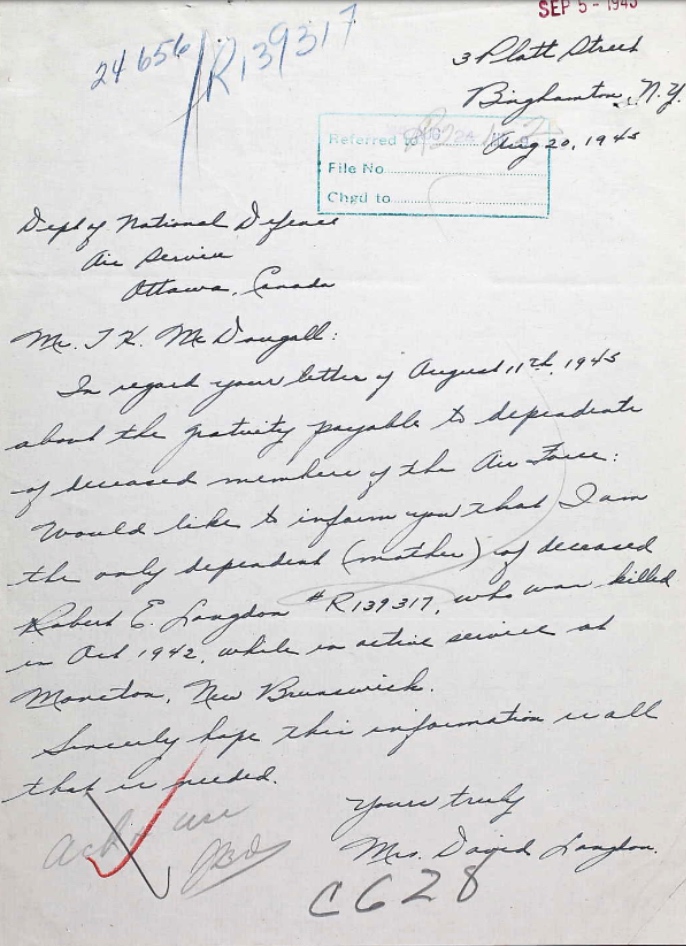 SEP 5 - 1945
24656 / R139317
3 Platt Street
Binghamton, N.Y.
Aug 20, 1945
Referred to
File No
Chgd to
Dept of National Defence
Air Service
Ottawa, Canada
Mr. T K. McDougall:
In regard your letter of August 11th, 1945
about the gratuity payable to dependents
of deceased members of the Air Force:
Would like to inform you that I am
the only dependent (mother) of deceased
Robert E. Langdon #R139317, who was killed
in Oct 1942, while in active service at
Moncton, New Brunswick.
Sincerely hope this information is all
that is needed.
Yours truly
Mrs. David Langdon.
C628